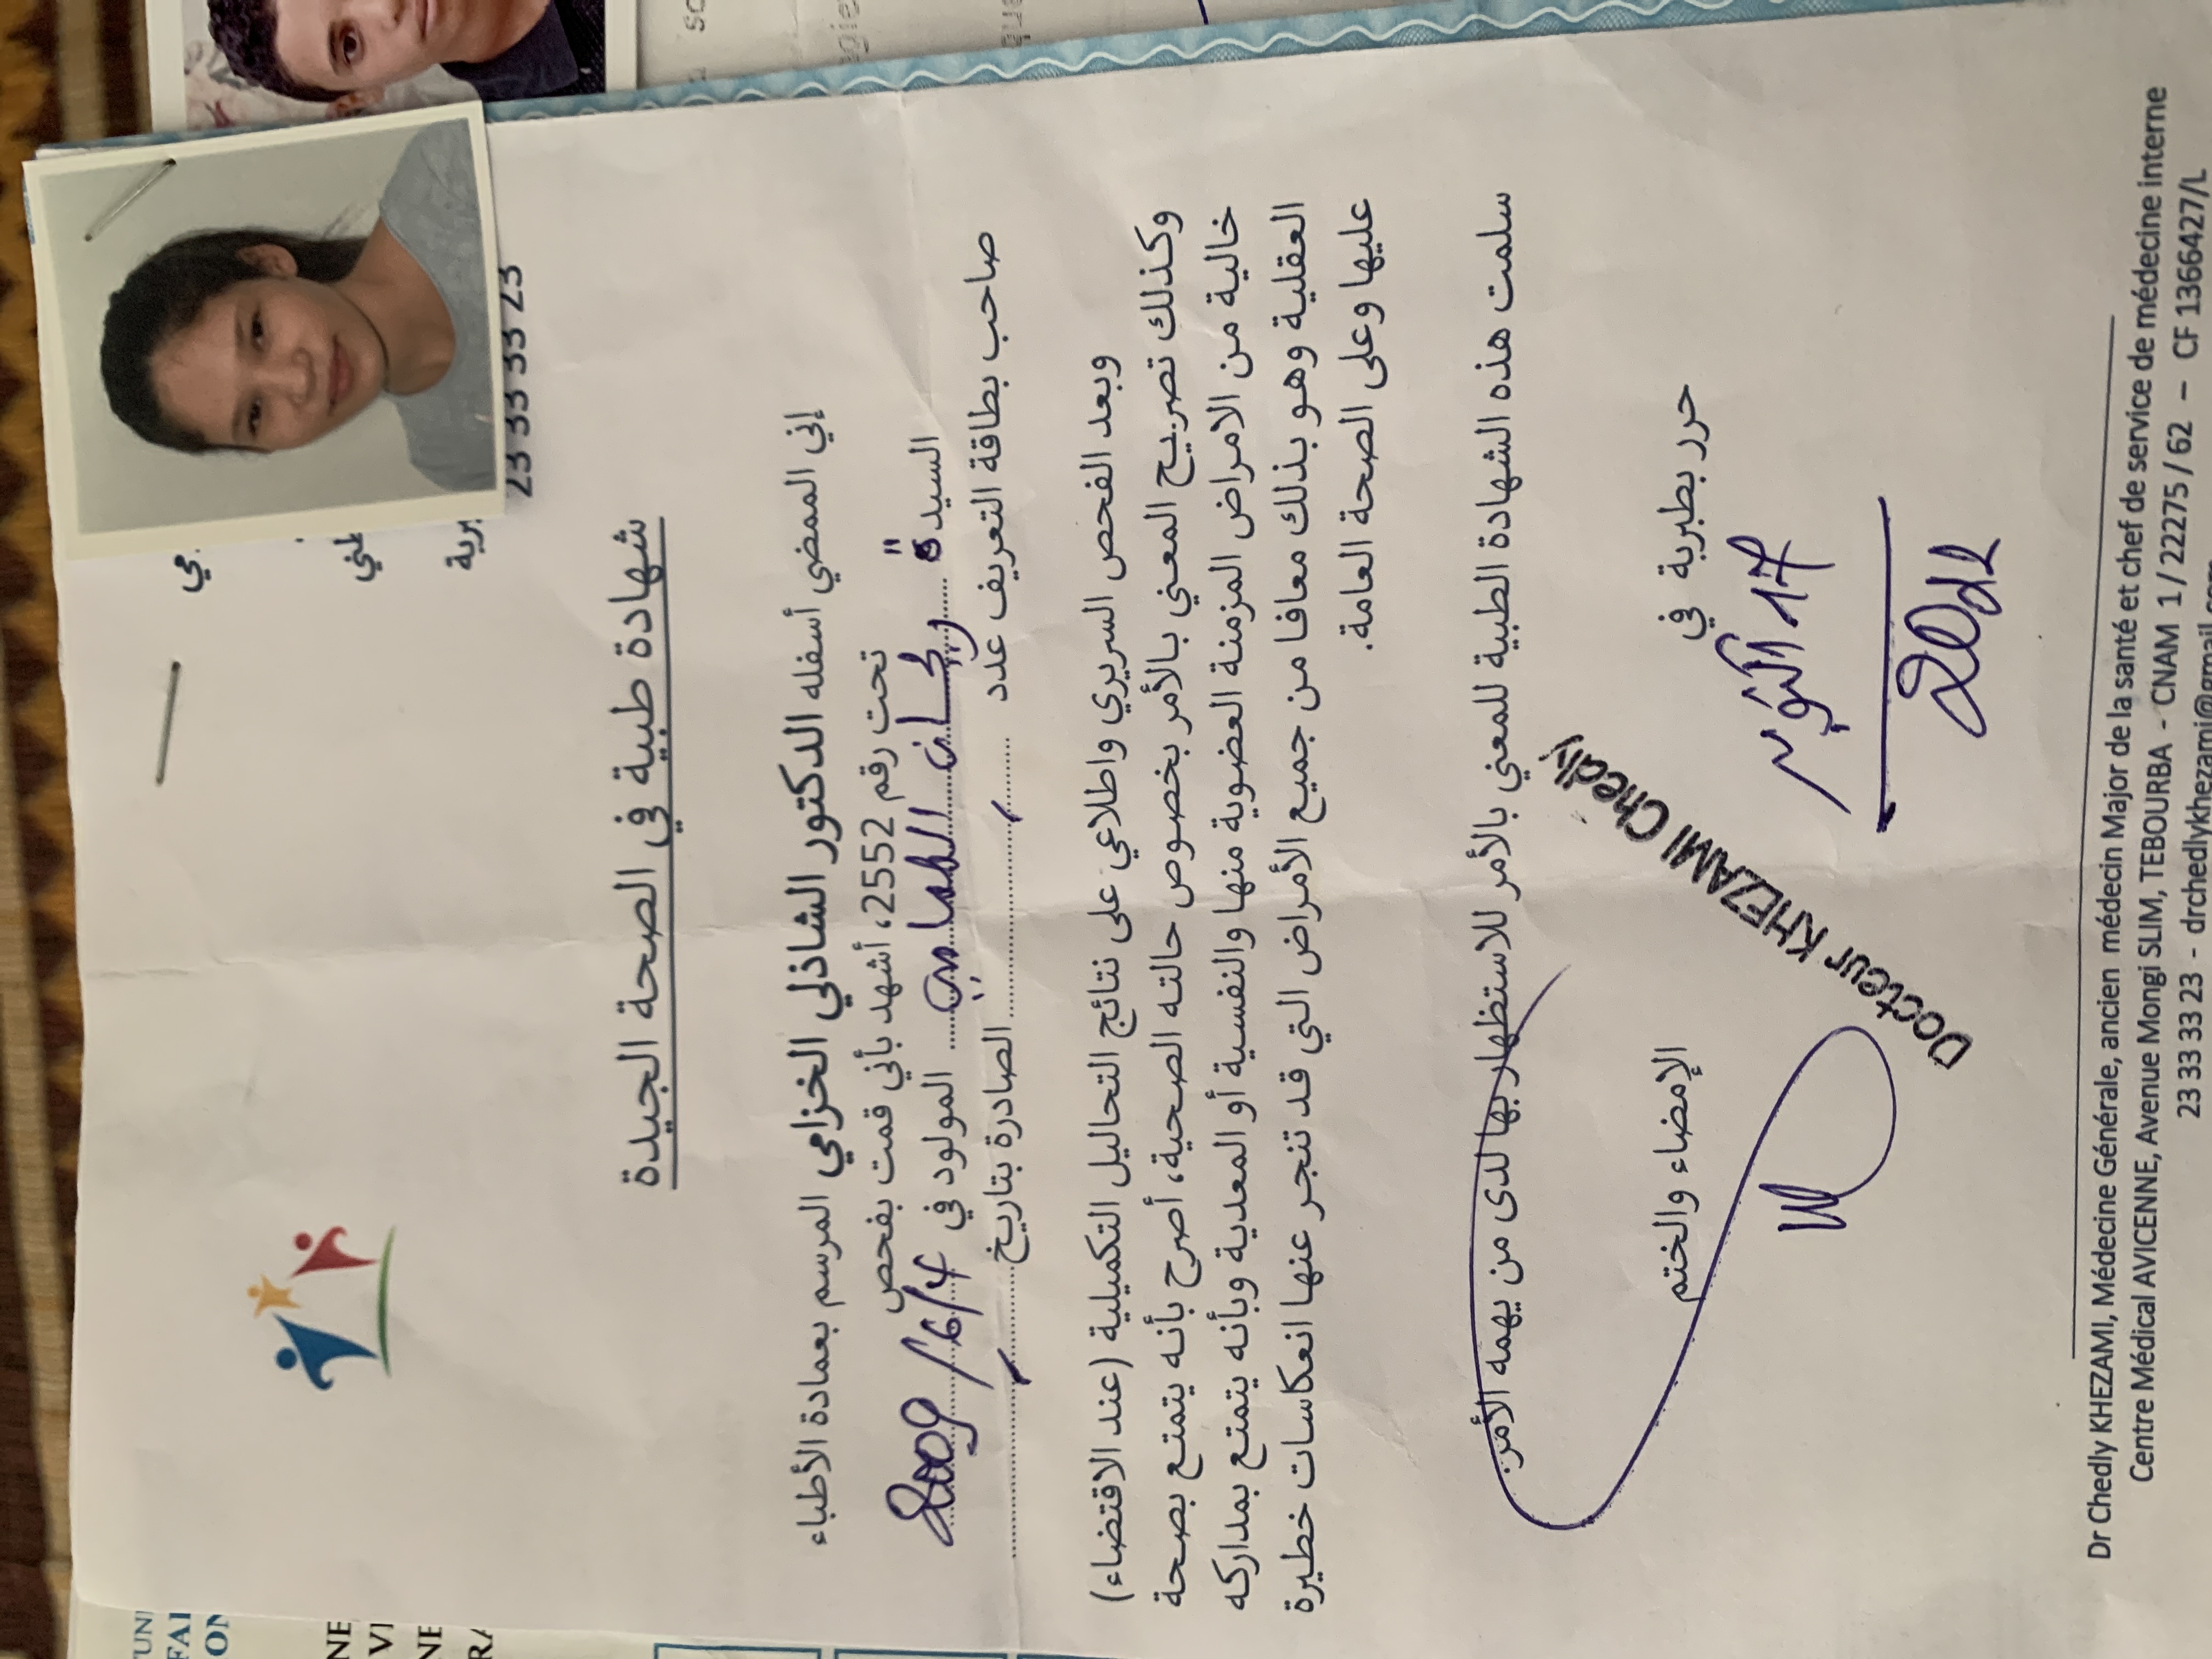 مي
طني
برية
23 33 33 23
شهادة طبية في الصحة الجيدة
إني الممضي أسفله الدكتور الشاذلي الخزامي المرسم بعمادة الأطباء
تحت رقم 25552، أشهد بأني قمت بفحص
السيدة ريحان المولود في 4/6/2009
صاحب بطاقة التعريف عدد الصادرة بتاريخ
وبعد الفحص السريري واطلاعي على نتائج التحاليل التكميلية (عند الاقتضاء)
وكذلك تصريح المعني بالأمر بخصوص حالته الصحية، أصرح بأنه يتمتع بصحة
خالية من الامراض المزمنة العضوية منها والنفسية أو المعدية وبأنه يتمتع بمداركه
العقلية وهو بذلك معافا من جميع الأمراض التي قد تنجر عنها انعكاسات خطيرة
عليها وعلى الصحة العامة.
سلمت هذه الشهادة الطبية للمعني بالأمر للاستظهار بها لدى من يهمه الأمر.
حرر بطبربة في
17 أكتوبر
الإمضاء والختم
Docteur KHEZAMI Chedly
Dr Chedly KHEZAMI, Médecine Générale, ancien médecin Major de la santé et chef de service de médecine interne
Centre Médical AVICENNE, Avenue Mongi SLIM, TEBOURBA - CNAM 1 / 22275 / 62 – CF 1366427/L
23 33 33 23 - drchedlykhezami@gmail.com